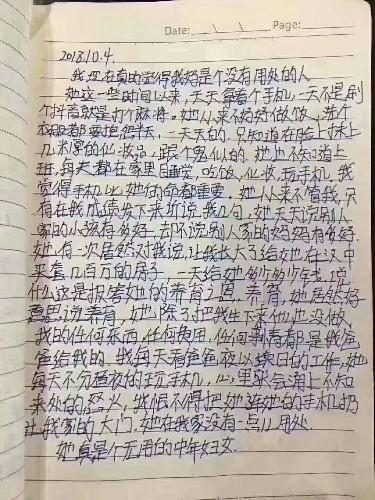 Date: \ \ Page:
2018.10.4.
我现在真的觉得我妈是个没有用处的人
她这一些时间以来,天天拿着个手机,一天不是刷
个抖音就是打麻将。她从来不好好做饭,洗个
衣服都要抱怨半天,一天天的,只知道在脸上抹上
几米厚的化妆品,跟个鬼似的。她也不知道上
班,每天都在家里睡觉,吃饭,化妆,玩手机,我
觉得手机比她的命都重要。她从来不管我,只
有在我成绩发下来训说我几句,她天天说别人
家的小孩有多好,却不说别人家的妈妈有多好。
她有一次居然对我说,让我长大了给她在汉中
买套几百万的房子,一天给她多少多少钱,说
什么这是报答她的养育之恩。养育,她居然好
意思说养育,她除了把我生下来,也没做
我的任何东西,任何费用,任何都是我爸
爸给我的。我每天看爸爸夜以继日的工作,她
每天不分昼夜的玩手机,心里就会涌上不知
来处的怒火,我恨不得把她连她的手机扔
出我家的大门。她在我家没有一点儿用处。
她真是个无用的中年妇女。